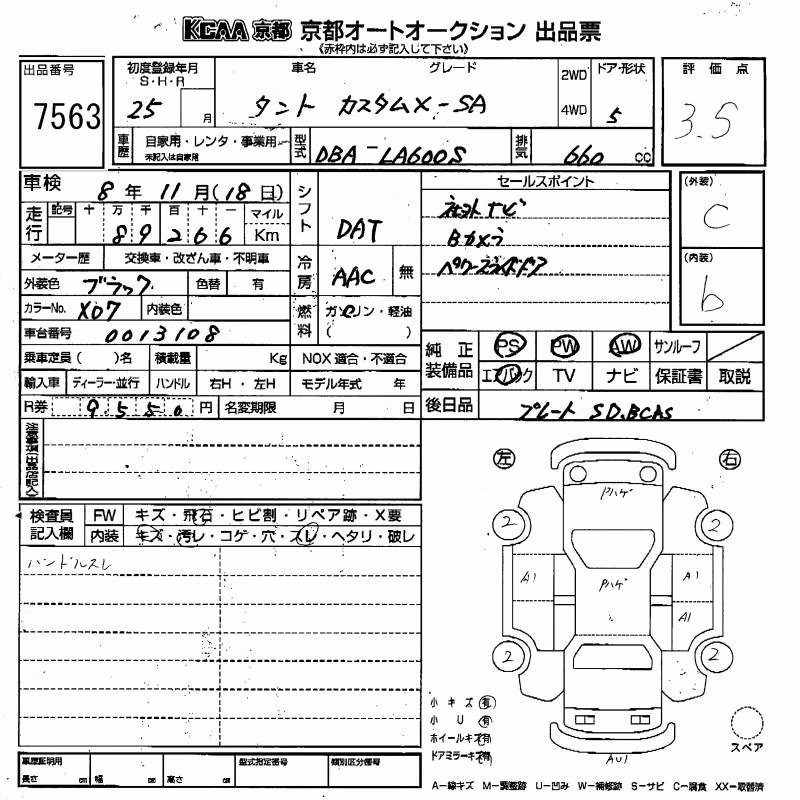 KCAA 京都 京都オートオークション 出品票
《赤枠内は必ず記入して下さい》
出品番号 7563
初度登録年月 S・H・R 25 月
車名 グレード タント カスタムX-SA
2WD 4WD
ドア・形状 5
評価点 3.5
車歴 自家用・レンタ・事業用 未記入は自家用
型式 DBA-LA600S
排気 660 CC
車検 8年 11月(18日)
走行 記号 十 万 千 百 十 一 マイル
89266 Km
メーター歴 交換車・改ざん車・不明車
外装色 ブラック 色替 有
カラーNo. X07 内装色
車台番号 0013108
乗車定員( )名 積載量 Kg
輸入車 ディーラー・並行 ハンドル 右H・左H モデル年式 年
R券 9550円 名変期限 月 日
シフト DAT
冷房 AAC 無
燃料 ガソリン・軽油 ( )
NOX適合・不適合
セールスポイント
ネットナビ
Bカメラ
パワースライドドア
(外装) C
(内装) b
純正装備品 PS PW AW サンルーフ
エアバック TV ナビ 保証書 取説
後日品 プレート SD.BCAS
注意事項(出品店記入)
検査員記入欄 FW キズ・飛石・ヒビ割・リペア跡・X要
内装 キズ・汚レ・コゲ・穴・スレ・ヘタリ・破レ
ハンドルスレ
左 右
Pハゲ
2 2
A1 Pハゲ A1
A1
2 2
小キズ 有
小U 有
ホイールキズ有
ドアミラーキズ有
AU1
スペア
車庫証明用 型式指定番号 類別区分番号
長さ cm 幅 cm 高さ cm
A−線キズ M−調整跡 U−凹み W−補修跡 S−サビ C−腐食 XX−取替済